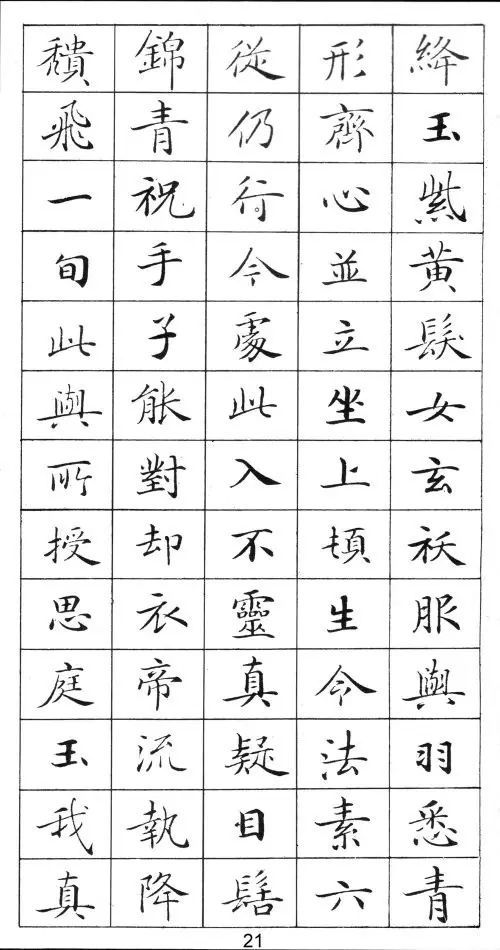 絳玉紫黃髮女玄袄服與羽悉青
形齊心並立坐上項生今法素六
從仍行今處此入不靈真疑目髻
錦青祝手子能對却衣帝流執降
穨飛一旬此與所授思庭玉我真
21